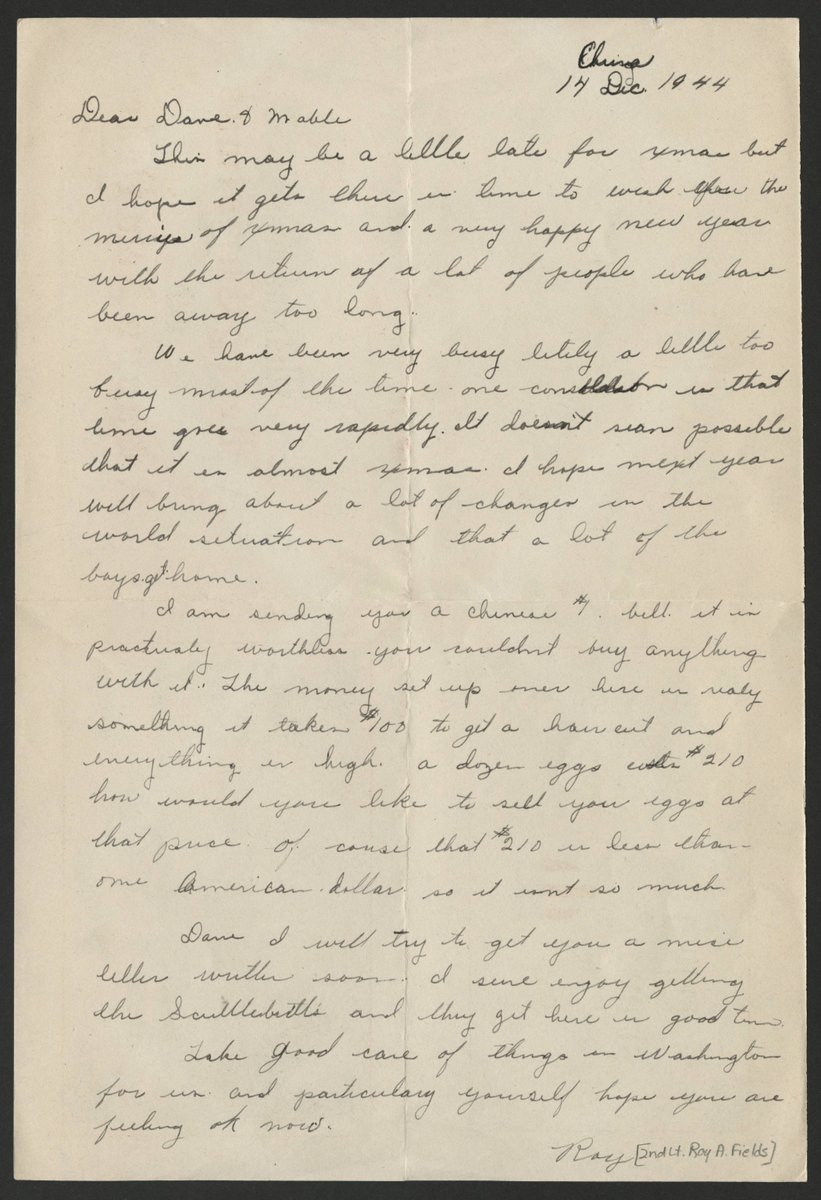 China
14 Dec. 1944
Dear Dave & Mable
This may be a little late for xmas but
I hope it gets there in time to wish you the
merrys of xmas and a very happy new year
with the return of a lot of people who have
been away too long.
We have been very busy litely a little too
busy most of the time. one is that
time goes very rapidly. It doesn't seam possible
that it is almost xmas. I hope next year
will bring about a lot of changes in the
world situation and that a lot of the
boys get home.
I am sending you a chinese $1. bill. it is
practicaly worthless you couldn't buy anything
with it. The money set up over here is realy
something it takes $100 to get a hair cut and
everything is high. a dozen eggs costs $210
how would you like to sell you eggs at
that price. Of couse that $210 is less than
one American dollar so it isnt so much.
Dave I will try to get you a nice
letter written soon. I sure enjoy getting
the Scuttlebutts and they get here in good time.
Take good care of things in Washington
for us and particulary yourself hope you are
feeling ok now.
Roy [2nd Lt. Roy A. Fields]